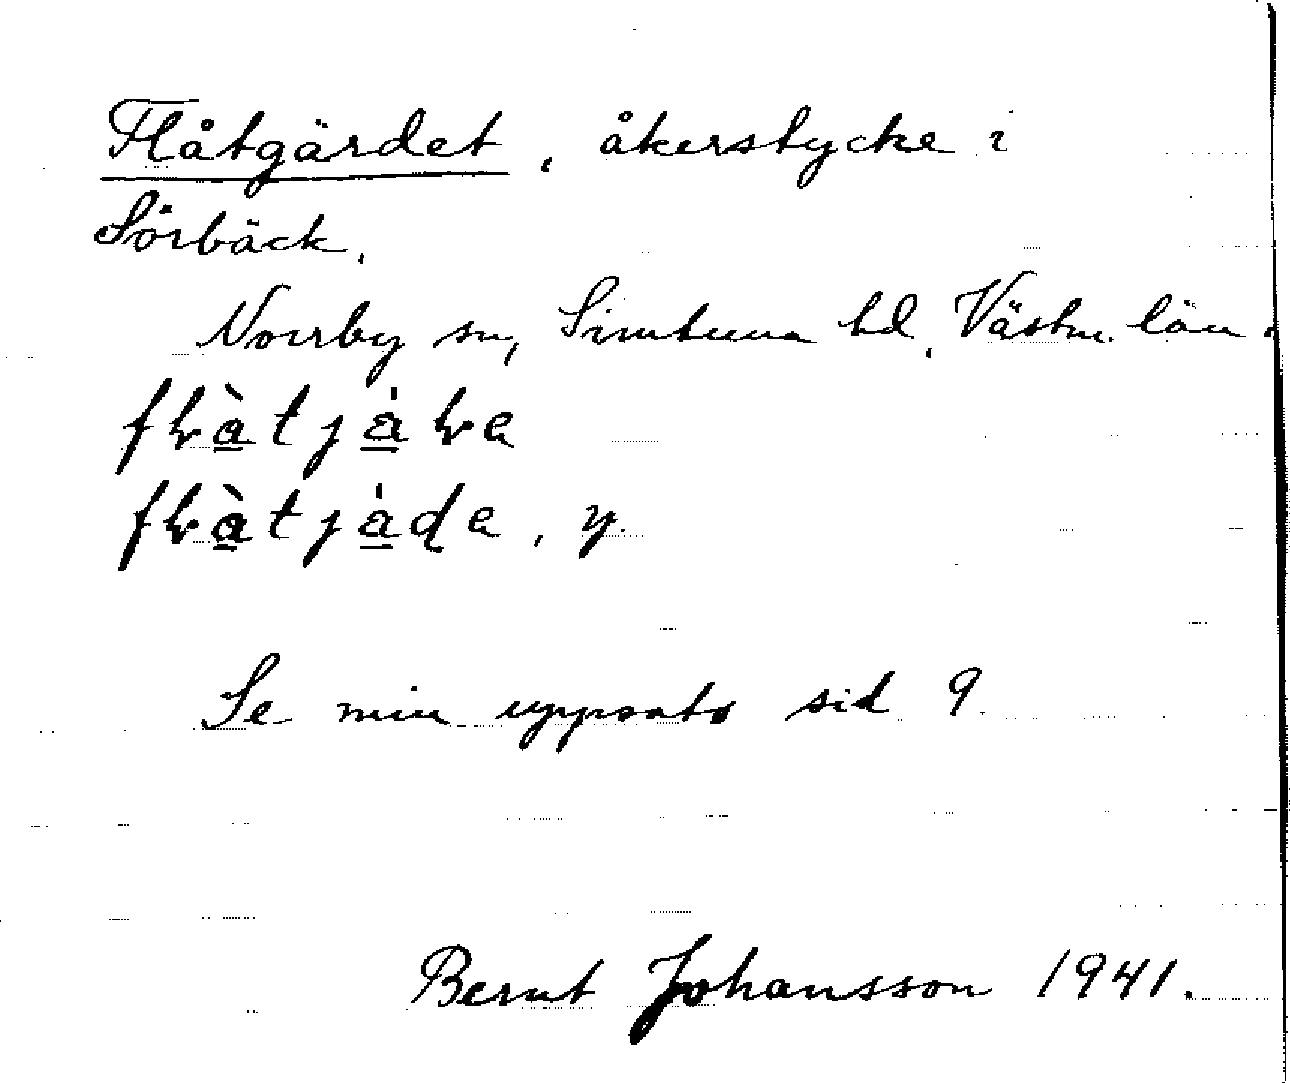 Flåtgärdet, åkerstycke i
Sörbäck.
Norrby sn, Simtuna hd, Västm. län.
Se min uppsats sid 9
Bernt Johansson 1941.